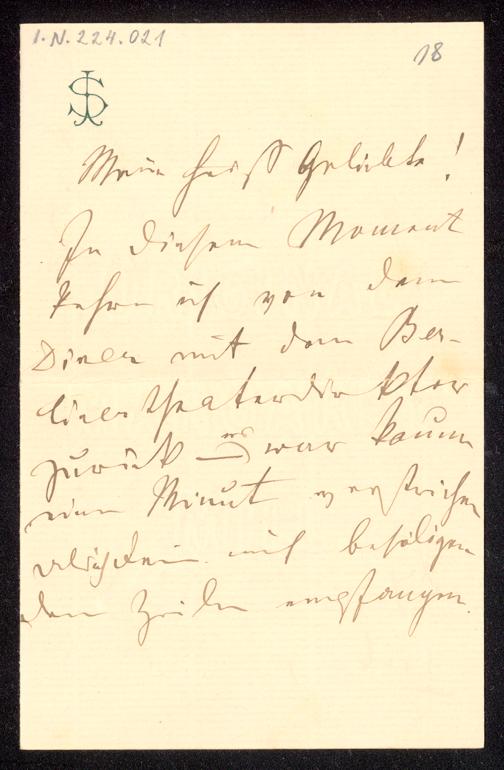 I.N. 224.021
18
JS
Meine heiß Geliebte!
In diesem Moment
kehre ich von dem
Diner mit dem Ber-
liner theaterdirektor
zurück es war kaum
eine Minut verstrichen
mich beseligen
den Zeilen empfangen.